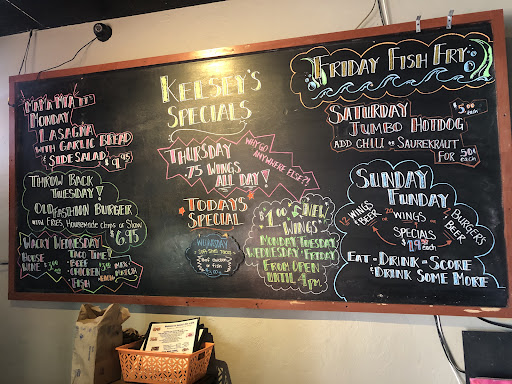 Kelsey's
Specials
Mama Mia!
Monday
Lasagna
with Garlic Bread
& Side Salad $9.95
Throw Back
Tuesday!
Old Fashion Burger
with Fries, Homemade Chips or Slaw
$6.95
Wacky Wednesday
House
Wine
Taco Time!
Beef
Chicken
Fish
Mix
Match
Thursday
.75 Wings
All Day!
Why Go
Anywhere
Else?!
Todays
Special
Wednesday
Beef Chicken
or Fish
$1.00 Jewel
Wings
Monday, Tuesday
Wednesday & Friday
From Open
Until 4pm
Friday Fish Fry
Saturday $5.00
Jumbo Hotdog each
Add Chili or Saurekraut
For 50¢
each
Sunday
Funday
12 Wings
& Beer
20
Wings
2 Burgers
& Beer
Specials
$19.95
each
Eat - Drink - Score
& Drink Some More